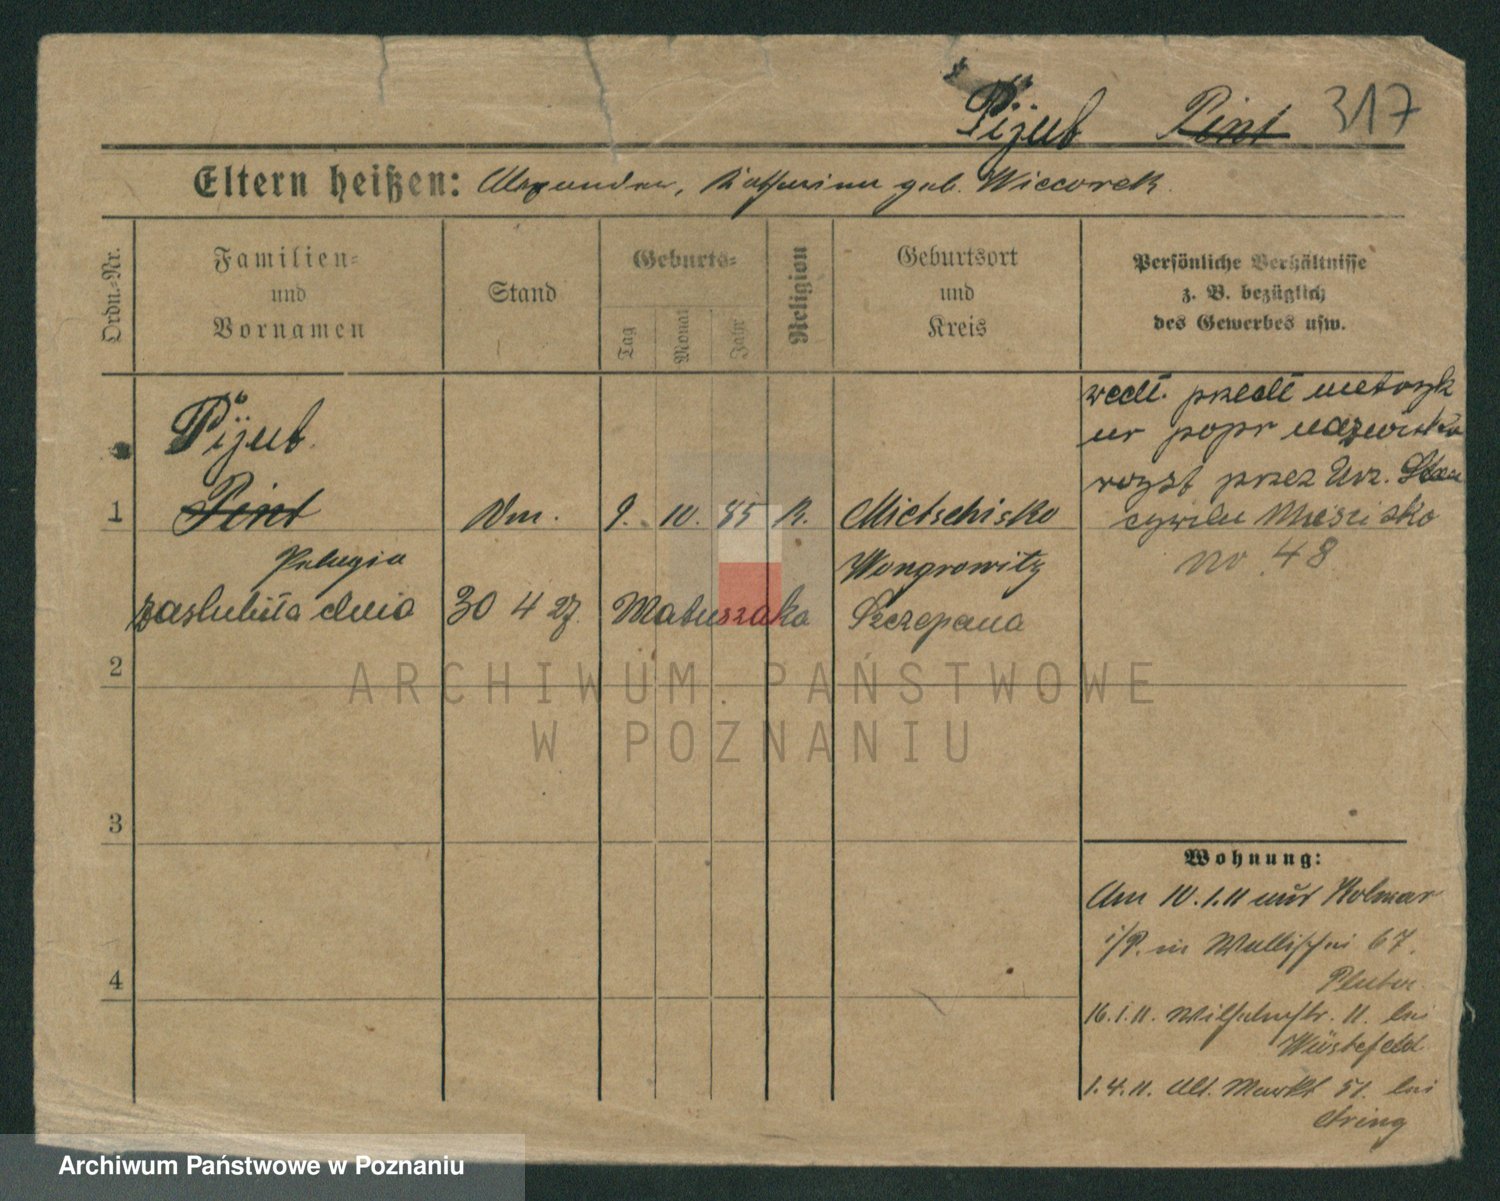 Pijub Pint 317
Eltern heißen: Alexander, Katharina geb. Wieczorek.
Ordn.-Nr.
Familien-
und
Vornamen
Stand
Geburts-
Tag
Monat
Jahr
Religion
Geburtsort
und
Kreis
Persönliche Verhältnisse
z. B. bezüglich
des Gewerbes usw.
wedł. przedł metryk
ur popr nazwisko
wyst przez Urz. Stan
cywiln Mieścisko
no 48
Pijub.
1 Pint Dm. 9. 10. 85 K. Mietschisko
Pelagia Wongrowitz
zaslubiła dnia 30 4 27. Matuszaka Szczepana
2
3
4
Wohnung:
Am 10.1.11 aus Kolmar
i/P. in Wallischei 67.
16.1.11. Wilhelmstr. 11. bei
Wüstefeld
1.4.11. Alt. Markt 51. bei
ARCHIWUM PAŃSTWOWE
W POZNANIU
Archiwum Państwowe w Poznaniu